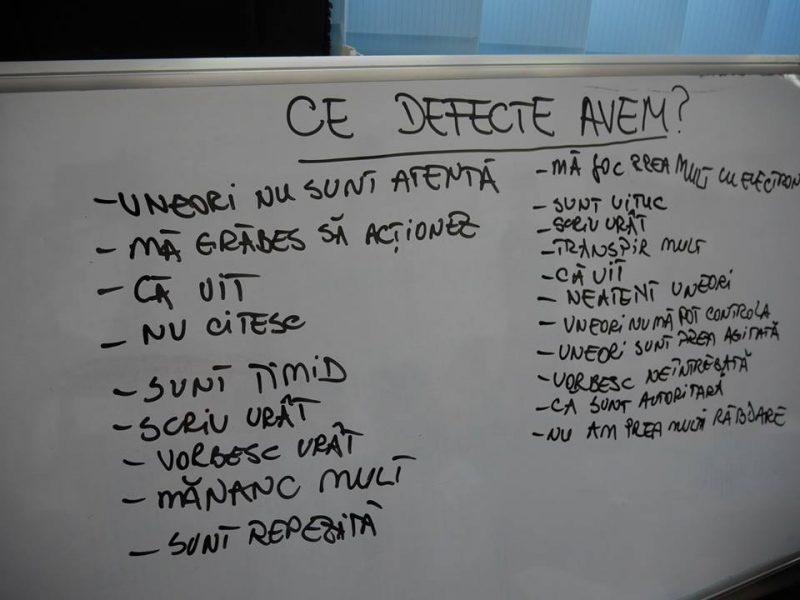 CE DEFECTE AVEM?
- UNEORI NU SUNT ATENTĂ
- MĂ GRĂBES SĂ ACȚIONEZ
- CĂ UIT
- NU CITESC
- SUNT TIMID
- SCRIU URÂT
- VORBESC URÂT
- MĂNANC MULT
- SUNT REPEZITĂ
- MĂ JOC PREA MULT CU ELECTRON
- SUNT UITUC
- SCRIU URÂT
- TRANSPIR MULT
- CĂ UIT
- NEATENT UNEORI
- UNEORI NU MĂ POT CONTROLA
- UNEORI SUNT PREA AGITATĂ
- VORBESC NEÎNTREBATĂ
- CA SUNT AUTORITARĂ
- NU AM PREA MULTĂ RĂBDARE